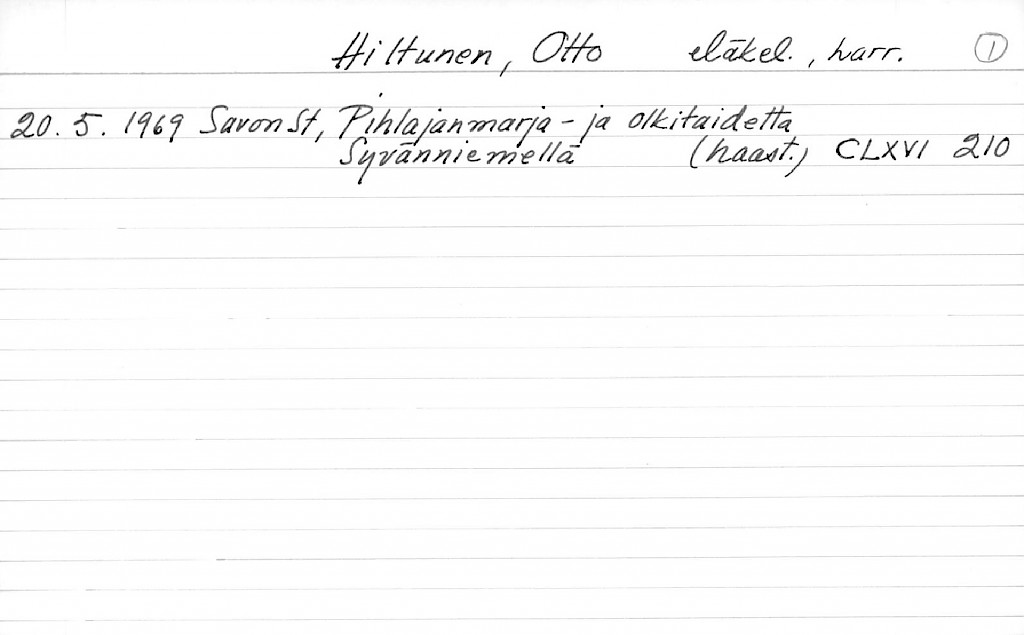 Hiltunen, Otto eläkel., harr. 1
20. 5. 1969 Savon St, Pihlajanmarja- ja olkitaidetta
Syvänniemellä (haast.) CLXVI 210